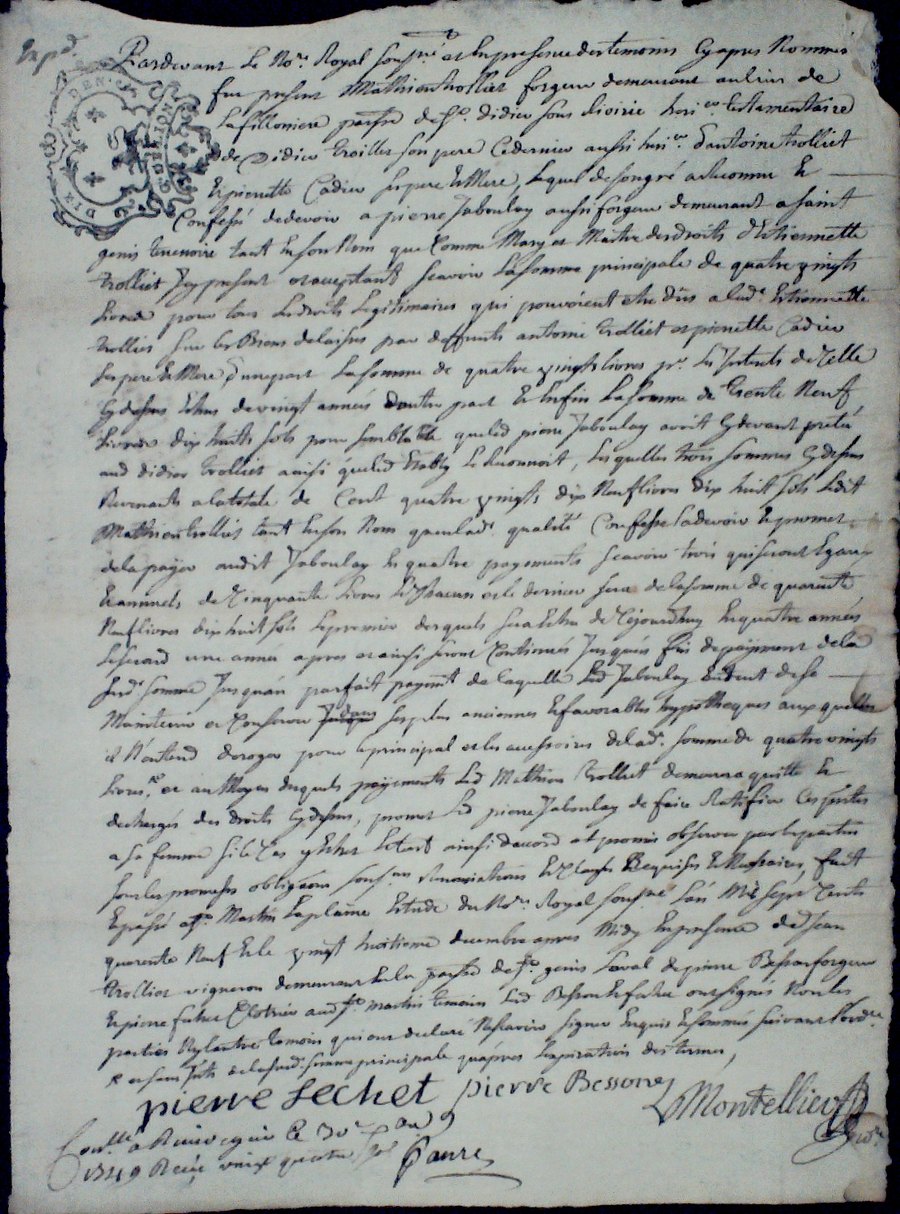 Exp.d
Pardevant Le No.re Royal soussné et En presence des temoins Cy apres Nommés
fut present Mathieu trolliet forgeur demeurant au lieu de
La fillonniere parsse de St. didier sous Riverie heri.er testamentaire
de Didier trolliet son pere Ce dernier aussi heri.er d'antoine trolliet
Et pierrette Cadier ses pere Et Mere, Lequel de son gré a Reconnu Et
Confessé de devoir a pierre Jaboulay aussi forgeur demeurant a saint
genis terrenoire tant En son Nom que Comme Mary et Maitre des droits d'Etiennette
trolliet Icy present et acceptant scavoir La somme principale de quatre vingts
Livres pour tous Les droits Legitimaires qui pouvoient etre dus a lad.e Etiennette
trolliet sur les Biens delaissés par deffunts antoine trolliet et pierrette Cadier
ses pere Et Mere d'une part La somme de quatre vingts livres pr. Les Interets de Celle
Cy dessus Echus de vingt années d'autre part Et Enfin La somme de trente Neuf
Livres dix huit sols pour semblable que led pierre Jaboulay avoit Cy devant preté
aud didier trolliet ainsi que led Le Reconnoit, Lesquelles trois sommes Cy dessus
Revenants a la totale de Cent quatre vingts dix Neuf livres dix huit sols Ledit
Mathieu trolliet tant En son Nom qu'en lad.e qualité Confesse La devoir Et promet
de la payer audit Jaboulay En quatre payements scavoir trois qui seront Egaux
Et annuels de Cinquante livres Chacun et le dernier sera de la somme de quarante
Neuf livres dix huit sols Le premier desquels sera Echu de Ce jourdhuy En quatre années
Le second une année apres et ainsi seront Continués Jusques fin de payement de la
susd.e somme Jusqu'au parfait payemt de Laquelle Led Jaboulay Entend de se
Maintenir et Conserver ses plus anciennes Et favorables hypotheques auxquelles
il N'entend deroger pour le principal et les accessoires de lad.e somme de quatre vingts
Livres, et au Moyen desquels payements Led Mathieu trolliet demeurera quitte Et
dechargé des droits Cy dessus, promet Led pierre Jaboulay de faire Ratifier Ces presentes
a sa femme si le Cas y Echet Le tout ainsi accordé et promis observer par les parties
sous les promesses obligaons Renonciations Et Clauses Requises Et Necessaires, fait
Et passé a St. Martin La plaine Etude du No.re Royal soussné L'an Mil sept Cents
quarante Neuf Et le vingt huitieme decembre apres Midy En presence de Jean
trolliet vigneron demeurant En la parsse de St. genis Laval de pierre Besson forgeur
Et pierre sechet Clotrier aud St. martin temoins Led Besson Et sechet ont signés Non les
parties Ny l'autre temoin qui ont declaré Ne scavoir signer Enquis Et sommés suivant l'ord.ce
et sans Ints de lasusd.e somme principale qu'apres L'expiration des termes,
pierre sechet pierre Besson
Montellier
No.re
Contllé a Rivedegier Ce 30e
1749 Recu vingt quatre sols Faure